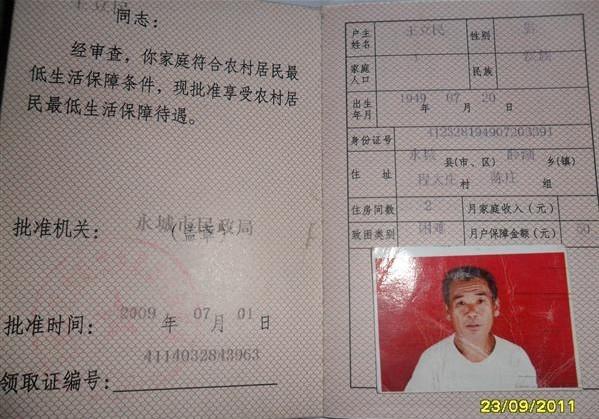 王立民
同志：
经审查，你家庭符合农村居民最
低生活保障条件，现批准享受农村居
民最低生活保障待遇。
批准机关： 永城市民政局
（盖章）
批准时间： 2009 年 07 月 01 日
领取证编号： 4114032843963
户主姓名 王立民 性别 男
家庭人口 1 民族 汉族
出生年月 1949 年 07 月 20 日
身份证号 412328194907203391
住址 永城 县(市、区) 乡(镇)
程大庄 村 陈庄 组
住房间数 2 月家庭收入（元）
致困类别 困难 月户保障金额(元)
23/09/2011